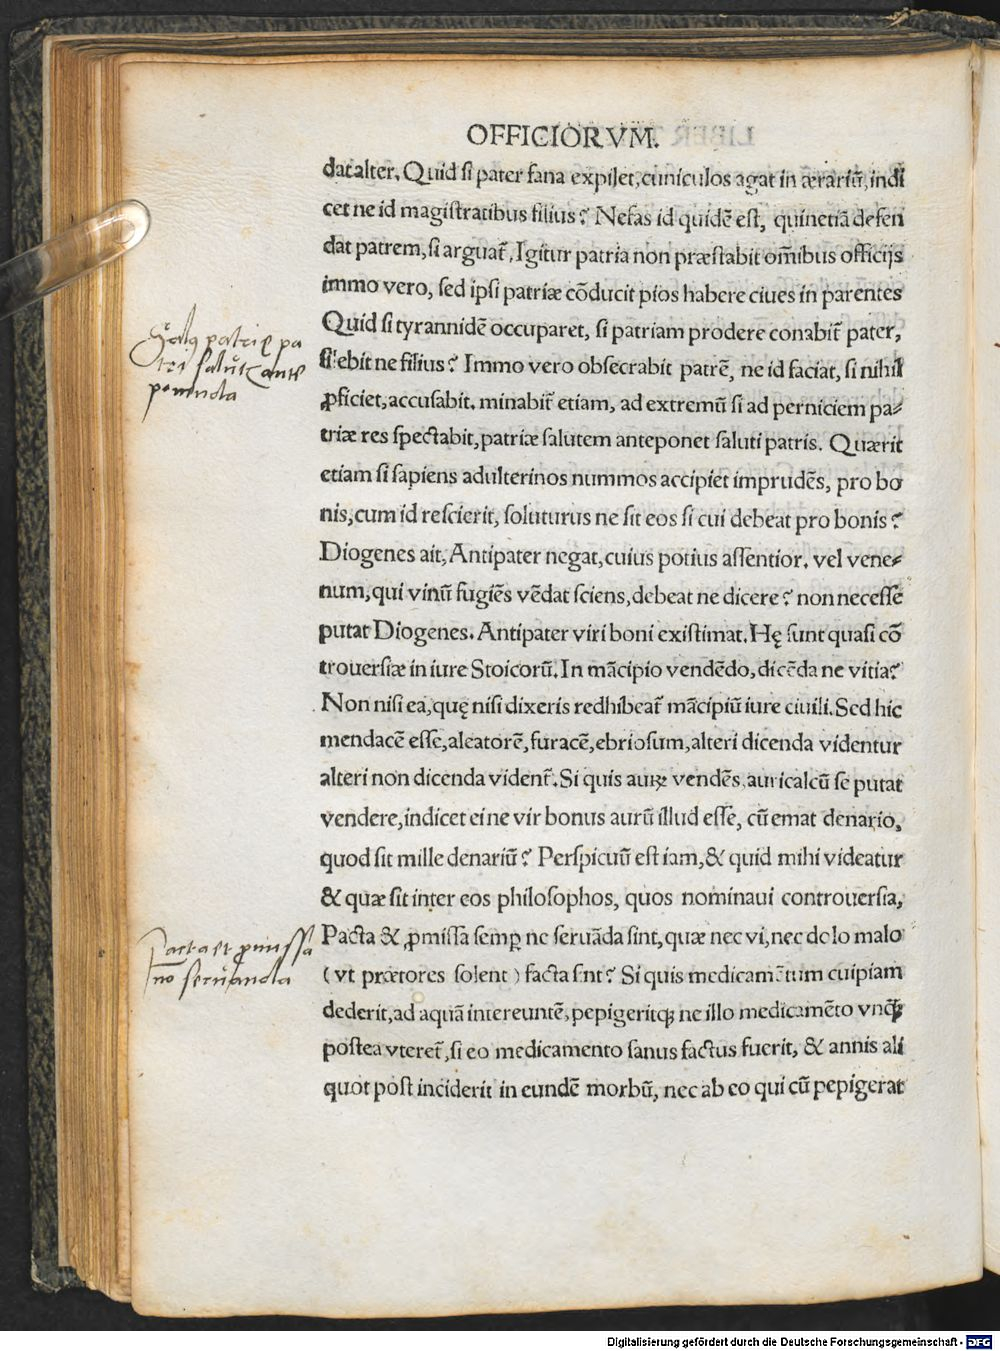 OFFICIORVM.
dat alter. Quid si pater fana expilet, cuniculos agat in ærariũ, indi
cet ne id magistratibus filius? Nefas id quidẽ est, quinetiã defen
dat patrem, si arguat᷑. Igitur patria non præstabit om̃ibus officijs
immo vero, sed ipsi patriæ cõducit pios habere ciues in parentes
Quid si tyrannidẽ occuparet, si patriam prodere conabit᷑ pater,
silebit ne filius? Immo vero obsecrabit patrẽ, ne id faciat, si nihil
ꝓficiet, accusabit. minabit᷑ etiam, ad extremũ si ad perniciem pa-
triæ res spectabit, patriæ salutem anteponet saluti patris. Quærit
etiam si sapiens adulterinos nummos accipiet imprudẽs, pro bo
nis, cum id rescierit, soluturus ne sit eos si cui debeat pro bonis?
Diogenes ait, Antipater negat, cuius potius assentior. vel vene-
num, qui vinũ fugiẽs vẽdat sciens, debeat ne dicere? non necesse
putat Diogenes. Antipater viri boni existimat. Hę sunt quasi cõ
trouersiæ in iure Stoicorũ. In mãcipio vendẽdo, dicẽda ne vitia?
Non nisi ea, quę nisi dixeris redhibeat᷑ mãcipiũ iure ciuili. Sed hic
mendacẽ esse, aleatorẽ, furacẽ, ebriosum, alteri dicenda videntur
alteri non dicenda vident᷑. Si quis auꝝ vendẽs, auricalcũ se putat
vendere, indicet ei ne vir bonus aurũ illud esse, cũ emat denario,
quod sit mille denariũ? Perspicuũ est iam, & quid mihi videatur
& quæ sit inter eos philosophos, quos nominaui controuersia,
Pacta & ꝓmissa semꝑ ne seruãda sint, quæ nec vi, nec dolo malo
(vt prætores solent) facta sint? Si quis medicamẽtum cuipiam
dederit, ad aquã intereuntẽ, pepigeritqꝫ ne illo medicamẽto vnqꝫ
postea vteret᷑, si eo medicamento sanus factus fuerit, & annis ali
quot post inciderit in eundẽ morbũ, nec ab eo qui cũ pepigerat
Salus patrię pa
tris saluti ante
ponenda
Pacta et ꝓmissa
nõ seruanda
Digitalisierung gefördert durch die Deutsche Forschungsgemeinschaft - DFG